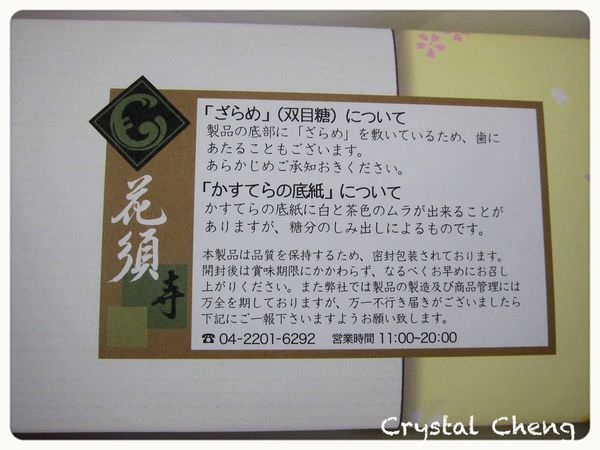 花須
寿
「ざらめ」(双目糖)について
製品の底部に「ざらめ」を敷いているため、歯に
あたることもございます。
あらかじめご承知おきください。
「かすてらの底紙」について
かすてらの底紙に白と茶色のムラが出来ることが
ありますが、糖分のしみ出しによるものです。
本製品は品質を保持するため、密封包装されております。
開封後は賞味期限にかかわらず、なるべくお早めにお召し
上がりください。また弊社では製品の製造及び商品管理には
万全を期しておりますが、万一不行き届きがございましたら
下記にご一報下さいますようお願い致します。
☎ 04-2201-6292 営業時間 11:00~20:00
Crystal Cheng